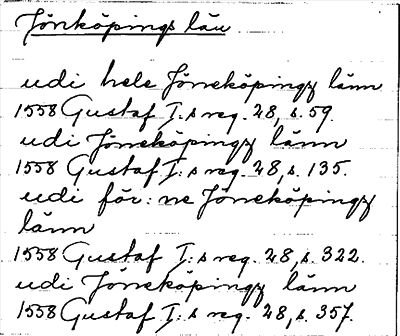 Jönköpings län
udi hele Jöneköpingz länn
1558 Gustaf I:s reg. 28, s. 59.
udi Jöneköpingz länn
1558 Gustaf I:s reg. 28, s. 135.
udi för:ne Jöneköpingz
länn
1558 Gustaf I:s reg. 28, s. 322.
udi Jöneköpingz länn
1558 Gustaf I:s reg. 28, s. 357.